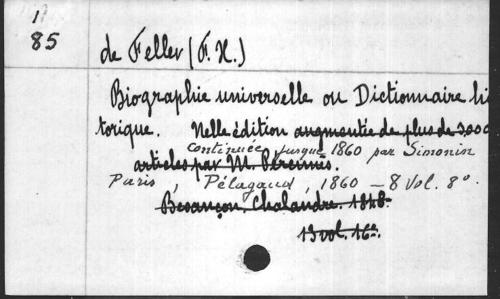 17
85
de Feller (F. X.)
Biographie universelle ou Dictionnaire his
torique. Nelle édition augmentée de plus de 3000
continuée jusque 1860 par Simonin
articles par M. Pérennès.
Paris, Pélagaud, 1860 – 8 Vol. 8º.
Besançon. Chalandre. 1848.
13 vol. 16º.